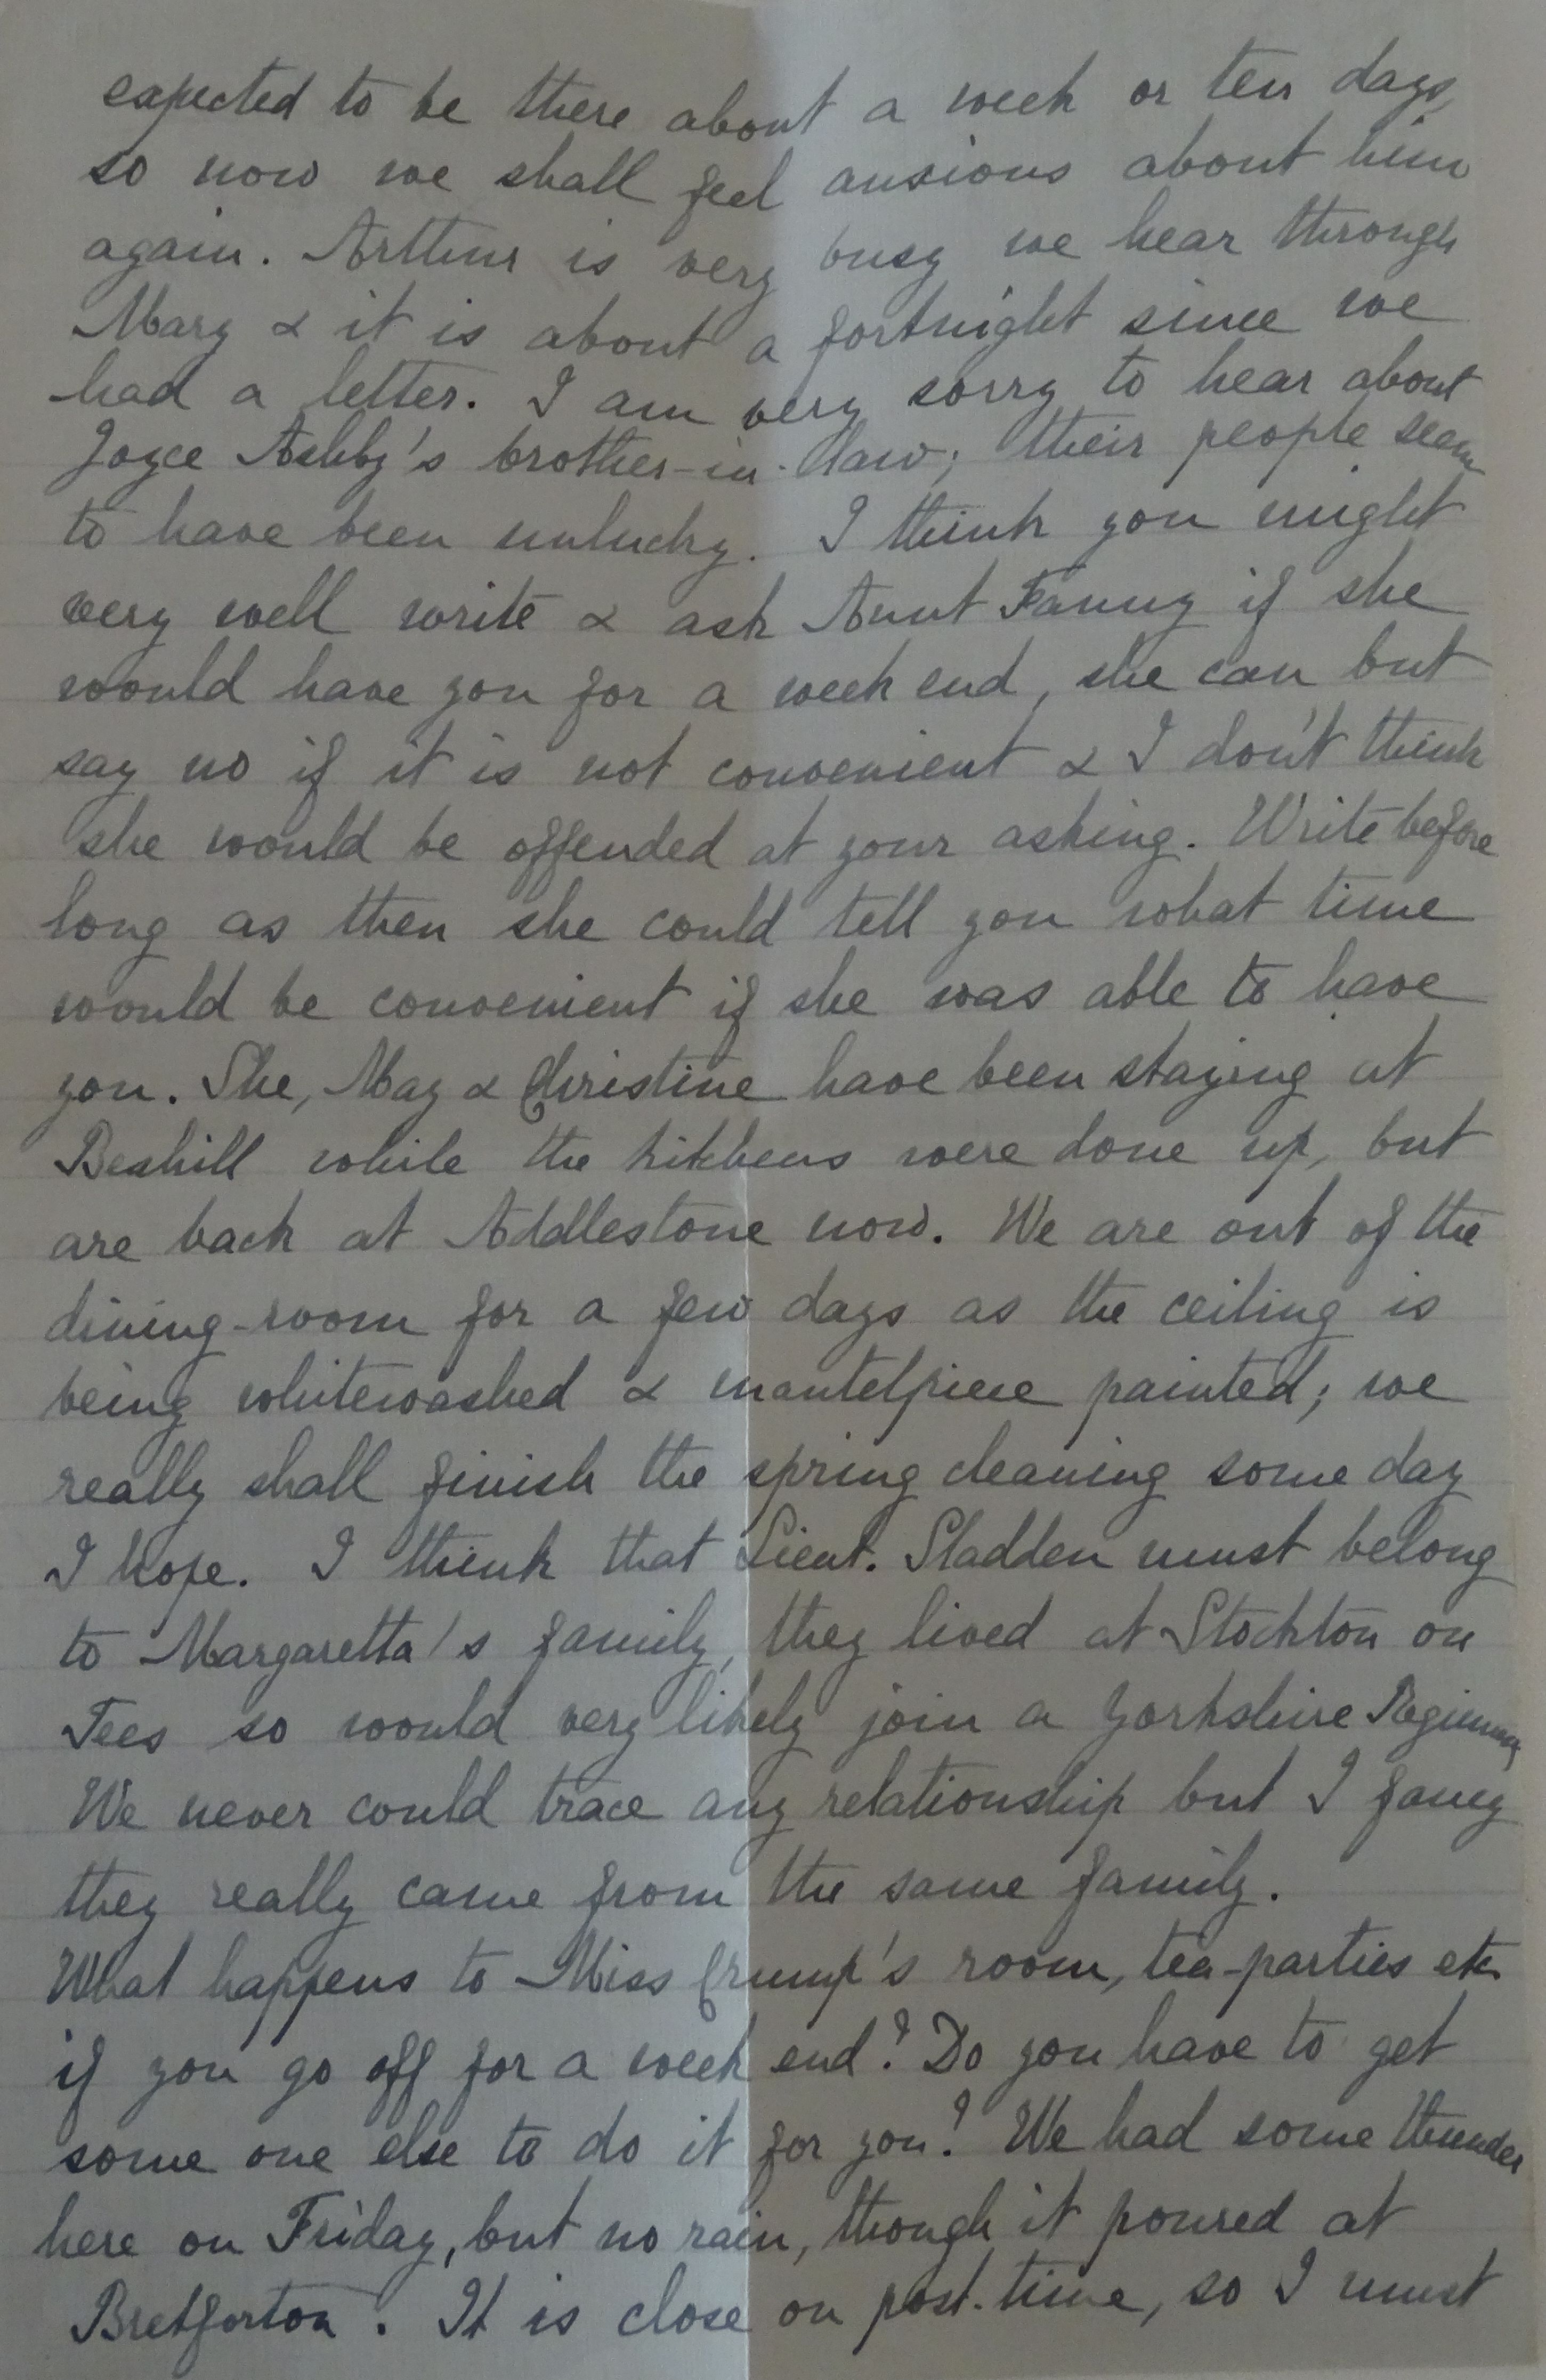 expected to be there about a week or ten days,
so now we shall feel anxious about him
again. Arthur is very busy we hear through
Mary & it is about a fortnight since we
had a letter. I am very sorry to hear about
Joyce Ashby's brother-in-law; their people seem
to have been unlucky. I think you might
very well write & ask Aunt Fanny if she
would have you for a week end, she can but
say no if it is not convenient & I don't think
she would be offended at your asking. Write before
long as then she could tell you what time
would be convenient if she was able to have
you. She, May & Christine have been staying at
Bexhill while the kitchens were done up, but
are back at Addlestone now. We are out of the
dining-room for a few days as the ceiling is
being whitewashed & mantelpiece painted; we
really shall finish the spring cleaning some day
I hope. I think that Lieut. Sladden must belong
to Margaretta's family, they lived at Stockton on
Tees so would very likely join a Yorkshire Regiment
We never could trace any relationship but I fancy
they really came from the same family.
What happens to Miss Crump's room, tea-parties etc
if you go off for a week end? Do you have to get
some one else to do it for you? We had some thunder
here on Friday, but no rain, though it poured at
Bretforton. It is close on post-time, so I must